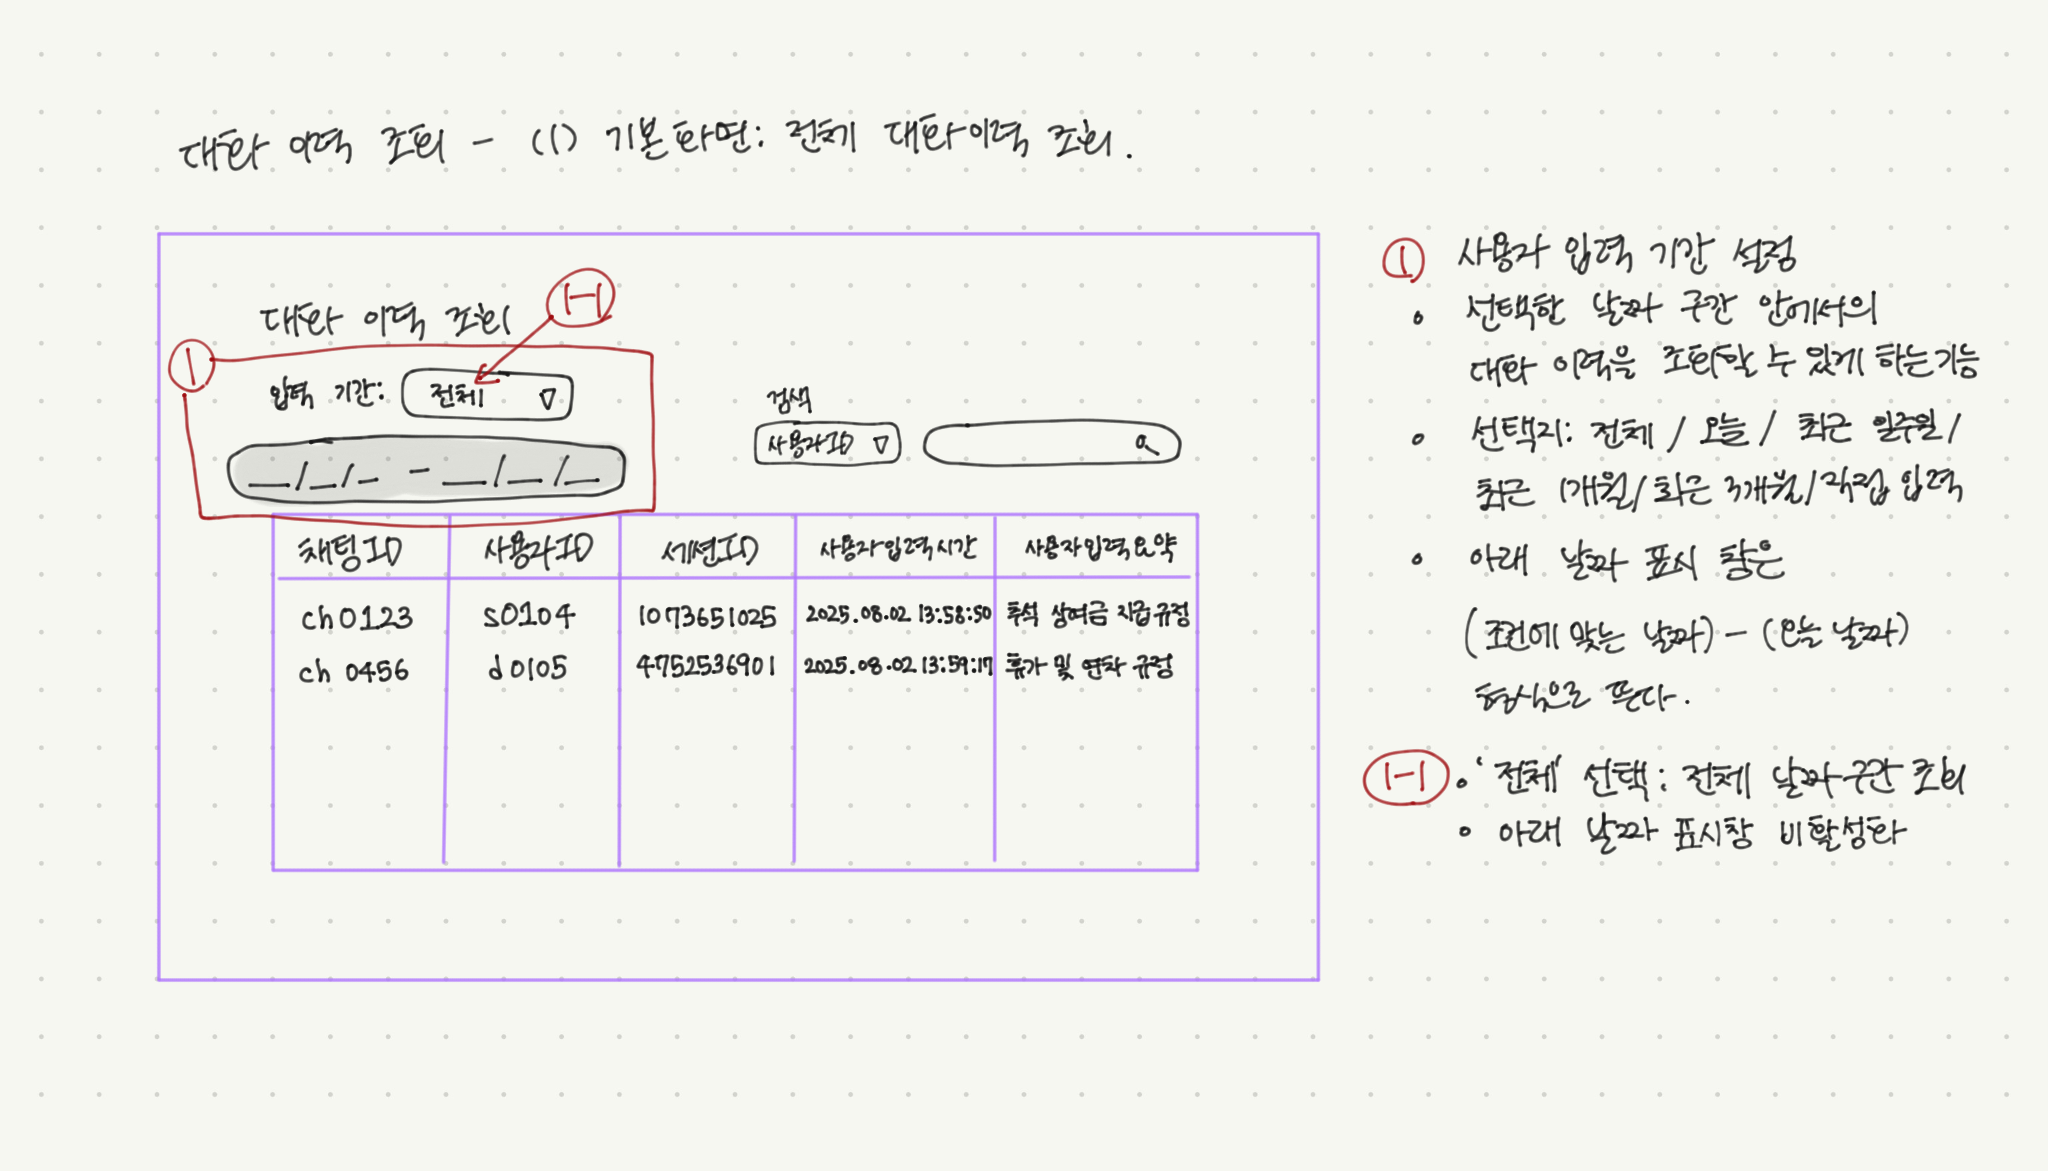 대화 이력 조회 - (1) 기본화면: 전체 대화이력 조회.
대화 이력 조회
1-1
1
입력 기간: 전체 ▽
__/__/__ - __/__/__
검색
사용자ID ▽
채팅ID 사용자ID 세션ID 사용자입력시간 사용자입력요약
ch0123 s0104 1073651025 2025.08.02 13:58:50 추석 상여금 지급규정
ch 0456 d0105 4752536901 2025.08.02 13:59:17 휴가 및 연차 규정
1 사용자 입력 기간 설정
• 선택한 날짜 구간 안에서의
대화 이력을 조회할 수 있게 하는기능
• 선택지: 전체 / 오늘 / 최근 일주일 /
최근 1개월/ 최근 3개월/ 직접 입력
• 아래 날짜 표시 창은
(조건에 맞는 날짜) - (오늘 날짜)
형식으로 뜬다.
1-1 • '전체' 선택: 전체 날짜구간 조회
• 아래 날짜 표시창 비활성화